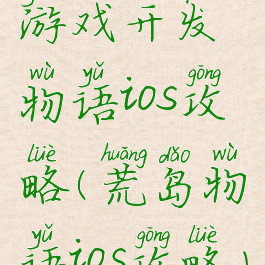 游戏开发
wù yǔ gōng
物语ios攻
lüè huāng dǎo wù
略(荒岛物
yǔ gōng lüè
语ios攻略)